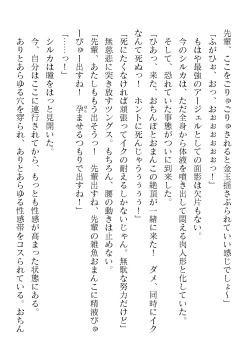 先輩、ここをこりゅこりゅされると金玉揺さぶられていい感じでしょ～」
「ふがひぉ、おっ、おぉぉぉぉぉぉっ！」
もはや最強のアージェルとしての面影は欠片もない。
今のシルカは、ただ全身から体液を噴き出して悶える肉人形と化していた。
そして、恐れていた事態がついに来た。
「ひあっ、来た、おちんぽとおまんこの絶頂が一緒に来た！　ダメ、同時にイク
なんて死ぬっ！　ホントに死んじゃうぅぅぅぅ！」
「死にたくなければ頑張ってイクの耐えるしかないじゃん。無駄な努力だけど」
無慈悲に突き放すゾングス。もちろん、腰の動きは止めない。
「先輩、あたしももう出そうっ！　先輩出すね！、先輩の雑魚おまんこに精液びゅ
ーびゅー出すね！　孕ませるつもりで出すね！」
「……っ！」
シルカは瞳をはっと見開いた。
今、自分はここに連行されてから、もっとも性感が高まった状態にある。
ありとあらゆる穴を穿られ、ありとあらゆる性感帯をコスられている。おちん